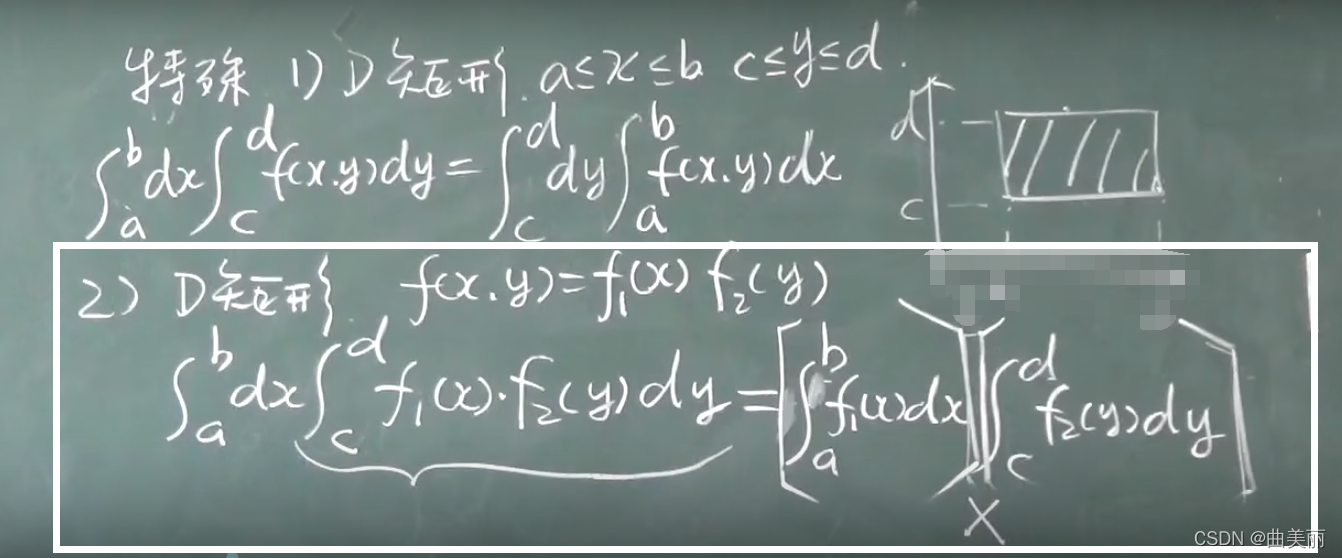 特殊 1) D矩形. a≤x≤b c≤y≤d.
∫_a^b dx ∫_c^d f(x.y)dy = ∫_c^d dy ∫_a^b f(x.y)dx
d
c
2) D矩形. f(x.y)=f₁(x) f₂(y)
∫_a^b dx ∫_c^d f₁(x)·f₂(y)dy = [∫_a^b f₁(x)dx][∫_c^d f₂(y)dy]
X
CSDN @曲美丽